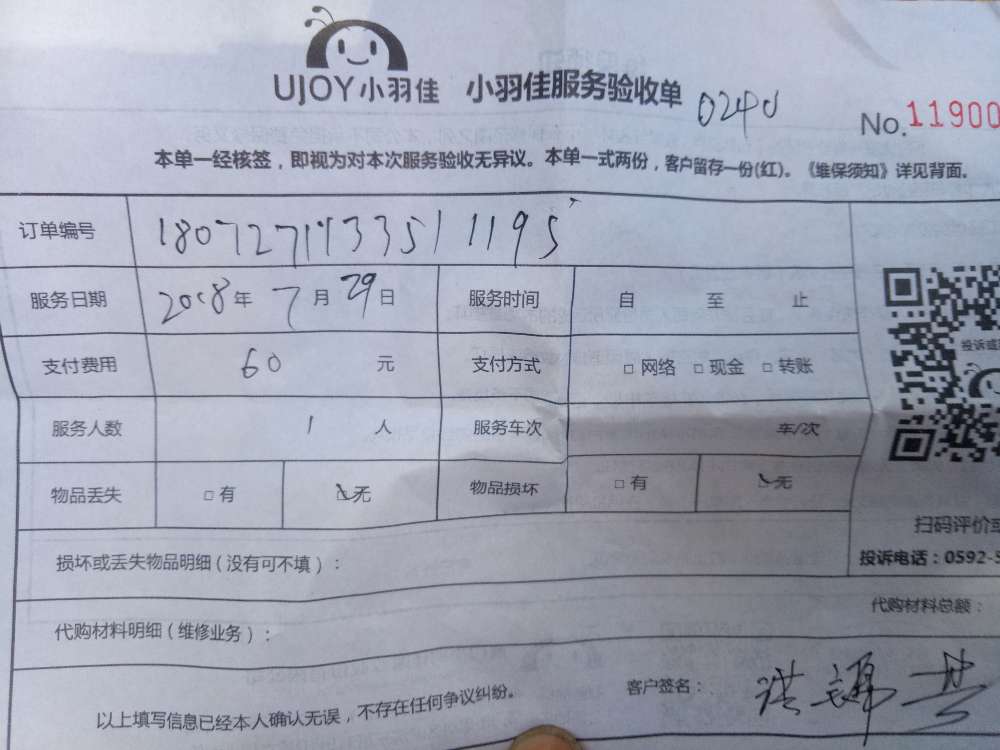 UJOY小羽佳 小羽佳服务验收单 0240 No.11900
本单一经核签，即视为对本次服务验收无异议。本单一式两份，客户留存一份(红)。《维保须知》详见背面。
订单编号 180727143351 1195
服务日期 2018年 7月 29日 服务时间 自 至 止
支付费用 60 元 支付方式 □ 网络 □ 现金 □ 转账
投诉或
服务人数 1 人 服务车次 车/次
物品丢失 □ 有 □ 无 物品损坏 □ 有 □ 无
扫码评价或
损坏或丢失物品明细（没有可不填）：
投诉电话：0592-5
代购材料总额：
代购材料明细（维修业务）：
以上填写信息已经本人确认无误，不存在任何争议纠纷。 客户签名： 洪